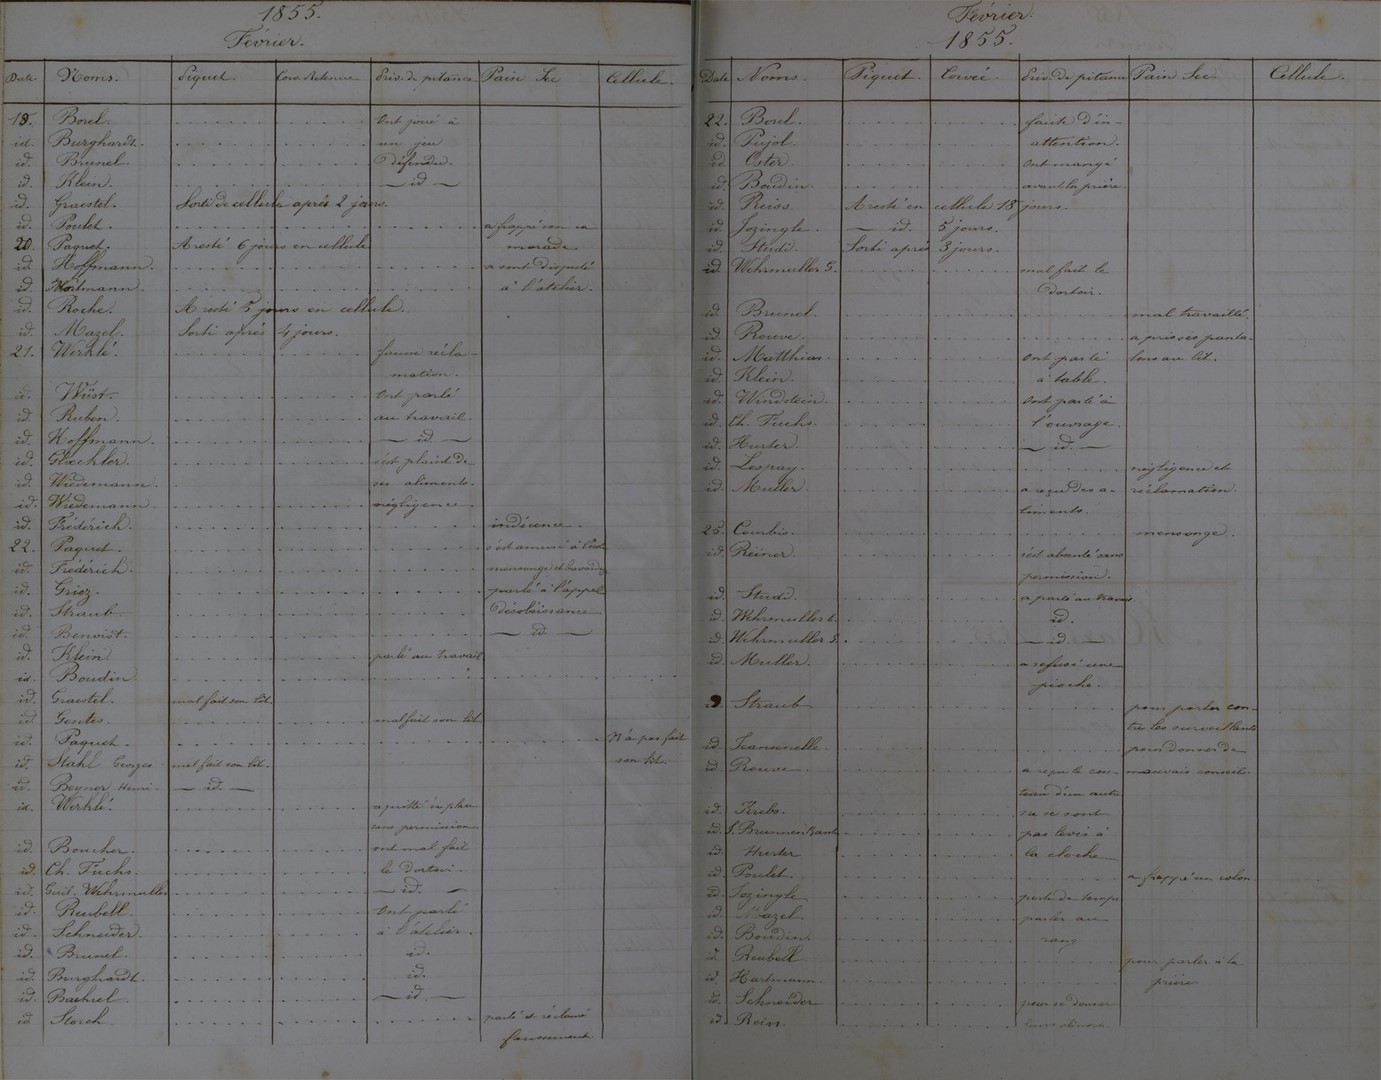 1855.
Février.
Date Noms. Piquet. Corv. Retenue Priv. de pitance Pain Sec Cellule.
18. Borel. Ont joué à
id. Burghardt. un jeu
id. Brunel. Défendu.
id. Klein. — id —
id. Graestel. Sorti de cellule après 2 jours.
id. Poulet. a frappé son ca
20. Paquet. A resté 6 jours en cellule marade.
id. Hoffmann. a sont disputé
id. Hartmann. à l'atelier.
id. Roche. A resté 5 jours en cellule.
id. Mazel. Sorti après 4 jours.
21. Werklé. fausse récla-
mation.
id. Wüst. Ont parlé
id. Ruben. au travail.
id. Hoffmann. — id —
id. Gloechler. s'est plaint de
id. Wiedemann. ses aliments.
id. Wiedemann. négligence
id. Frédérich. indécence.
22. Paquet. s'est amusé à
id. Frédérich. mensonge et
id. Griez. parlé à l'appel
id. Straub Désobéissance
id. Benoist. — id —
id. Klein parlé au travail
id. Boudin
id. Graestel. mal fait son lit.
id. Gentes. mal fait son lit
id. Paquet. N'a pas fait
id. Stahl Georges mal fait son lit. son lit.
id. Beyner Henri. — id. —
id. Werklé. a quitté sa place
sans permission.
id. Boucher. ont mal fait
id. Ch. Fuchs. le dortoir.
id. Guil. Wehrmuller — id. —
id. Reubell. Ont parlé
id. Schneider. à l'atelier.
id. Brunel. id.
id. Burghardt. id.
id. Bachrel. — id. —
id. Storch parlé et réclamé
faussement.
Février.
1855.
Date Noms. Piquet. Corvée. Priv. de pitance Pain Sec. Cellule.
22. Borel. faute d'in-
id. Pujol. attention.
id. Oster. Ont mangé
id. Boudin. avant la prière.
id. Reiss. A resté en cellule 18 jours.
id. Jozingle. — id. 5 jours.
id. Studi. Sorti après 3 jours.
id. Wehrmuller G. mal fait le
Dortoir.
id. Brunel. mal travaillé.
id. Reeuve. a pris ses panta-
id. Matthias. Ont parlé lons au lit.
id. Klein. à table.
id. Windstein. Ont parlé à
id. Ch. Fuchs. l'ouvrage.
id. Hurter. — id. —
id. Lespay. négligence et
id. Muller. a reçu des a- réclamation.
liments.
25. Courbis. mensonge.
id. Reiner. s'est absenté sans
permission.
id. Studi. a parlé au travail
id. Wehrmuller G. id.
id. Wehrmuller S. — id —
id. Muller. a refusé une
pioche.
id. Straub pour parler con-
tre les surveillants
id. Jeannelle pour donner de
id. Reeuve. a reçu le cou- mauvais conseils.
teau d'un autre.
id. Krebs. ne se sont
id. pas levés à
id. Hurter la cloche
id. Poulet. a frappé un colon.
id. Jozingle perte de temps
id. Mazel. parler au
id. Boudin. rang
id. Reubell pour parler à la
id. Hartmann. prière
id. Schneider pour se donner
id. Rein.